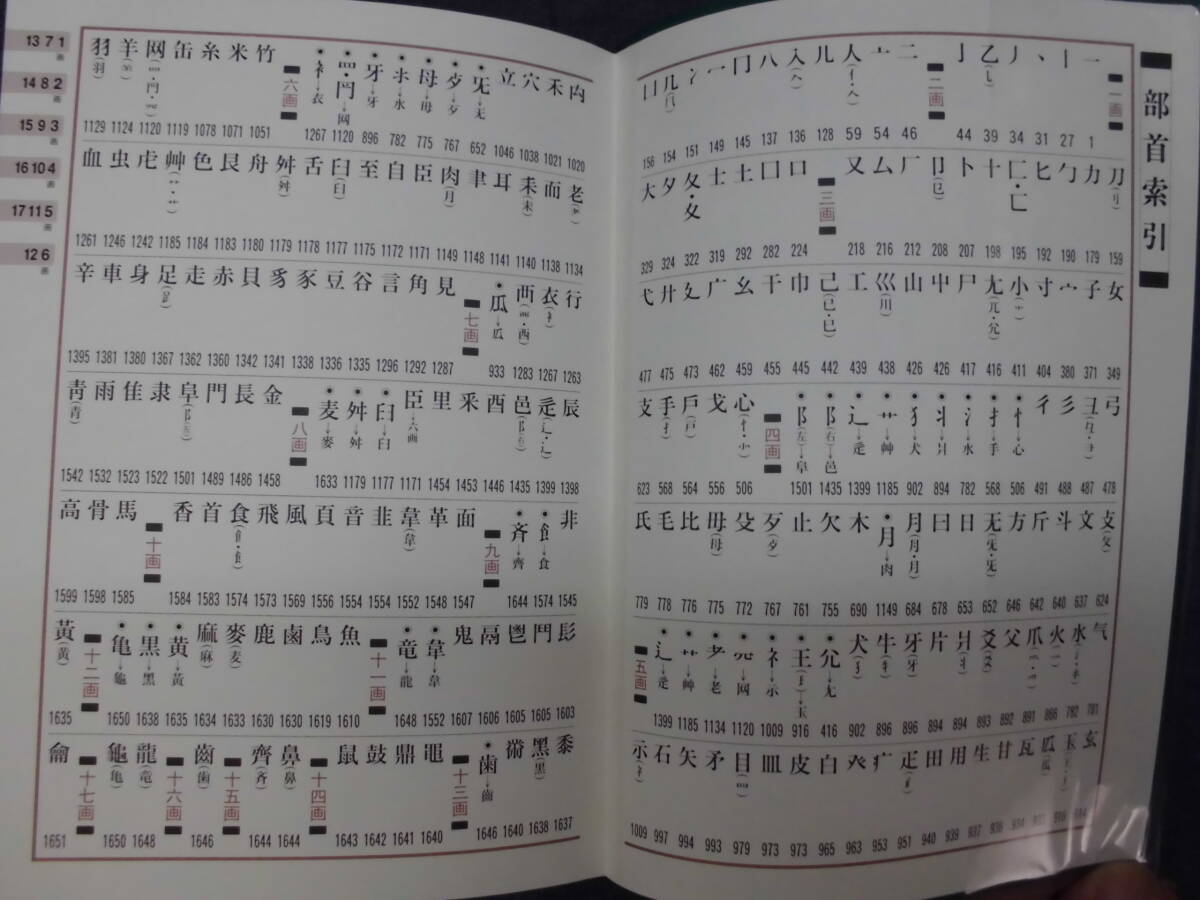 部首索引
一画
一 1
丨 27
丶 31
丿 34
乙(乚) 39
亅 44
二画
二 46
亠 54
人(亻・𠆢) 59
儿 128
入(𠆢) 136
八 137
冂 145
冖 149
冫 151
几(𠘨) 154
凵 156
刀(刂) 159
力 179
勹 190
匕 192
匚・匸 195
十 198
卜 207
卩(㔾) 208
厂 212
厶 216
又 218
三画
口 224
囗 282
土 292
士 319
夂・夊 322
夕 324
大 329
女 349
子 371
宀 380
寸 404
小(⺌) 411
尢(兀・尣) 416
尸 417
屮 426
山 426
巛(川) 438
工 439
己(已・巳) 442
巾 445
干 455
幺 459
广 462
廴 473
廾 475
弋 477
弓 478
彐(彑・⺕) 487
彡 488
彳 491
•忄→心 506
•扌→手 568
•氵→水 782
•丬→爿 894
•犭→犬 902
•艹→艸 1185
•辶→辵 1399
•阝(右)→邑 1435
•阝(左)→阜 1501
四画
心(忄・㣺) 506
戈 556
戶(戸) 564
手(扌) 568
支 623
攴(攵) 624
文 637
斗 640
斤 642
方 646
无(旡・旡) 652
日 653
曰 678
月(月・月) 684
•月→肉 1149
木 690
欠 755
止 761
歹(歺) 767
殳 772
毋(母) 775
比 776
毛 778
氏 779
气 781
水(氵・氺) 782
火(灬) 866
爪(爫・爫) 891
父 892
爻(㸚) 893
爿(丬) 894
片 894
牙(牙) 896
牛(牜) 896
犬(犭) 902
•尣→尢 416
•王(𤣩)→玉 916
•礻→示 1009
•罒→网 1120
•耂→老 1134
•艹→艸 1185
•辶→辵 1399
五画
玄
玉
瓜
瓦
甘 936
生 937
用 939
田 940
疋(⺪) 951
疒 953
癶 963
白 965
皮 973
皿 973
目(罒) 979
矛 993
矢 994
石 997
示(礻) 1009
13 7 1画
14 8 2画
15 9 3画
16 10 4画
17 11 5画
12 6画
禸 1020
禾 1021
穴 1038
立 1046
•旡→无 652
•歺→歹 767
•母→毋 775
•氺→水 782
•牙→牙 896
•罒・𦉪→网 1120
•衤→衣 1267
六画
竹 1051
米 1071
糸 1078
缶 1119
网(罒・𦉪・㓁) 1120
羊(⺷) 1124
羽(羽) 1129
老(耂) 1134
而 1138
耒(耒) 1140
耳 1141
聿 1148
肉(月) 1149
臣 1171
自 1172
至 1175
臼(𦥑) 1177
舌 1178
舛(舛) 1179
舟 1180
艮 1183
色 1184
艸(艹・艹) 1185
虍 1242
虫 1246
血 1261
行 1263
衣(衤) 1267
襾(覀・西) 1283
•瓜→瓜 933
七画
見 1287
角 1292
言 1296
谷 1335
豆 1336
豕 1338
豸 1341
貝 1342
赤 1360
走 1362
足(𧾷) 1367
身 1380
車 1381
辛 1395
辰 1398
辵(辶・辶) 1399
邑(阝(右)) 1435
酉 1446
釆 1453
里 1454
臣→六画 1171
•臼→臼 1177
•舛→舛 1179
•麦→麥 1633
八画
金 1458
長 1486
門 1489
阜(阝(左)) 1501
隶 1522
隹 1523
雨 1532
靑(青) 1542
非 1545
•飠→食 1574
•斉→齊 1644
九画
面 1547
革 1548
韋(韋) 1552
韭 1554
音 1554
頁 1556
風 1569
飛 1573
食(飠・飠) 1574
首 1583
香 1584
十画
馬 1585
骨 1598
高 1599
髟 1603
鬥 1605
鬯 1605
鬲 1606
鬼 1607
•韋→韋 1552
•竜→龍 1648
十一画
魚 1610
鳥 1619
鹵 1630
鹿 1630
麥(麦) 1633
麻(麻) 1634
•黄→黃 1635
•黒→黑 1638
•亀→龜 1650
十二画
黃(黄) 1635
黍 1637
黑(黒) 1638
黹 1640
•歯→齒 1646
十三画
黽 1640
鼎 1641
鼓 1642
鼠 1643
十四画
鼻(鼻) 1644
齊(斉) 1644
十五画
齒(歯) 1646
十六画
龍(竜) 1648
龜(亀) 1650
十七画
龠 1651